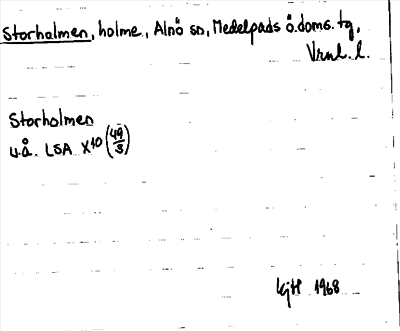 Storholmen, holme, Alnö sn, Medelpads ö. doms. tg,
Vrnl. l.
Storholmen
u.å. LSA X10 (49/3)
1968